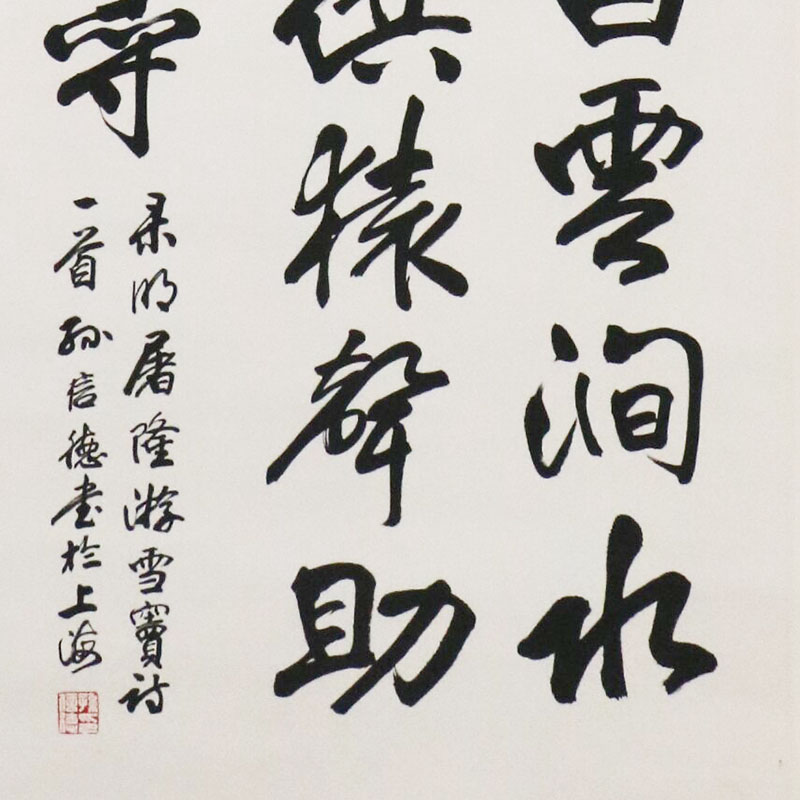 雲澗水
供猿聲助
录明屠隆游雪竇诗
一首孫信德書於上海